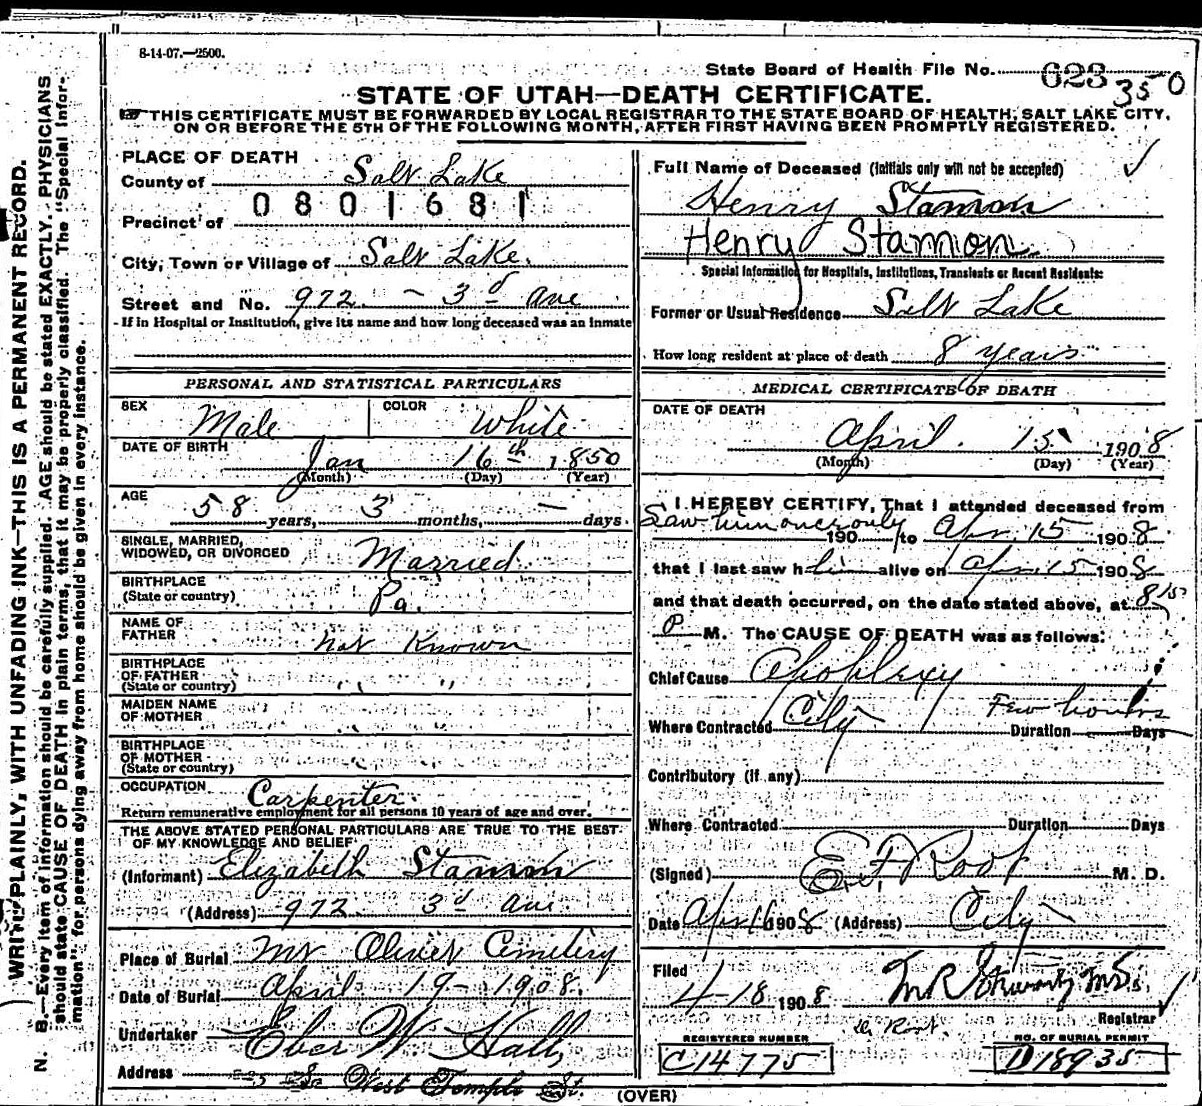 8-14-07.—2500.
State Board of Health File No. 623 350
STATE OF UTAH—DEATH CERTIFICATE.
THIS CERTIFICATE MUST BE FORWARDED BY LOCAL REGISTRAR TO THE STATE BOARD OF HEALTH, SALT LAKE CITY,
ON OR BEFORE THE 5TH OF THE FOLLOWING MONTH, AFTER FIRST HAVING BEEN PROMPTLY REGISTERED.
WRITE PLAINLY, WITH UNFADING INK—THIS IS A PERMANENT RECORD.
N. B.—Every item of information should be carefully supplied. AGE should be stated EXACTLY. PHYSICIANS
should state CAUSE OF DEATH in plain terms, that it may be properly classified. The "Special Infor-
mation" for persons dying away from home should be given in every instance.
PLACE OF DEATH
County of Salt Lake
0801681
Precinct of
City, Town or Village of Salt Lake.
Street and No. 972 - 3d Ave
If in Hospital or Institution, give its name and how long deceased was an inmate
PERSONAL AND STATISTICAL PARTICULARS
SEX Male COLOR White
DATE OF BIRTH Jan 16th 1850
(Month) (Day) (Year)
AGE
58 years, 3 months, — days.
SINGLE, MARRIED,
WIDOWED, OR DIVORCED Married
BIRTHPLACE
(State or country) Pa.
NAME OF
FATHER not Known
BIRTHPLACE
OF FATHER
(State or country) " "
MAIDEN NAME
OF MOTHER
BIRTHPLACE
OF MOTHER
(State or country)
OCCUPATION Carpenter.
Return remunerative employment for all persons 10 years of age and over.
THE ABOVE STATED PERSONAL PARTICULARS ARE TRUE TO THE BEST
OF MY KNOWLEDGE AND BELIEF
(Informant) Elizabeth Stamon
(Address) 972 3d Ave.
Place of Burial Mt Olivet Cemetery
Date of Burial April 19-1908.
Undertaker Eber W Hall,
Address So West Temple St.
Full Name of Deceased (initials only will not be accepted)
Henry Stamon
Henry Stamon
Special Information for Hospitals, Institutions, Transients or Recent Residents:
Former or Usual Residence Salt Lake
How long resident at place of death 8 years
MEDICAL CERTIFICATE OF DEATH
DATE OF DEATH
April 15 1908
(Month) (Day) (Year)
I HEREBY CERTIFY, That I attended deceased from
Saw him once only 190 to Apr. 15 1908
that I last saw him alive on Apr 15 1908
and that death occurred, on the date stated above, at 8 15
P M. The CAUSE OF DEATH was as follows:
Chief Cause Apoplexy
Where Contracted City Duration Few hours Days
Contributory (if any)
Where Contracted Duration Days
(Signed) E. F. Root M. D.
Date Apr 16 1908 (Address) City
Filed
4-18 1908
Registrar
Dr Root.
REGISTERED NUMBER
C14775
NO. OF BURIAL PERMIT
D18935
(OVER)